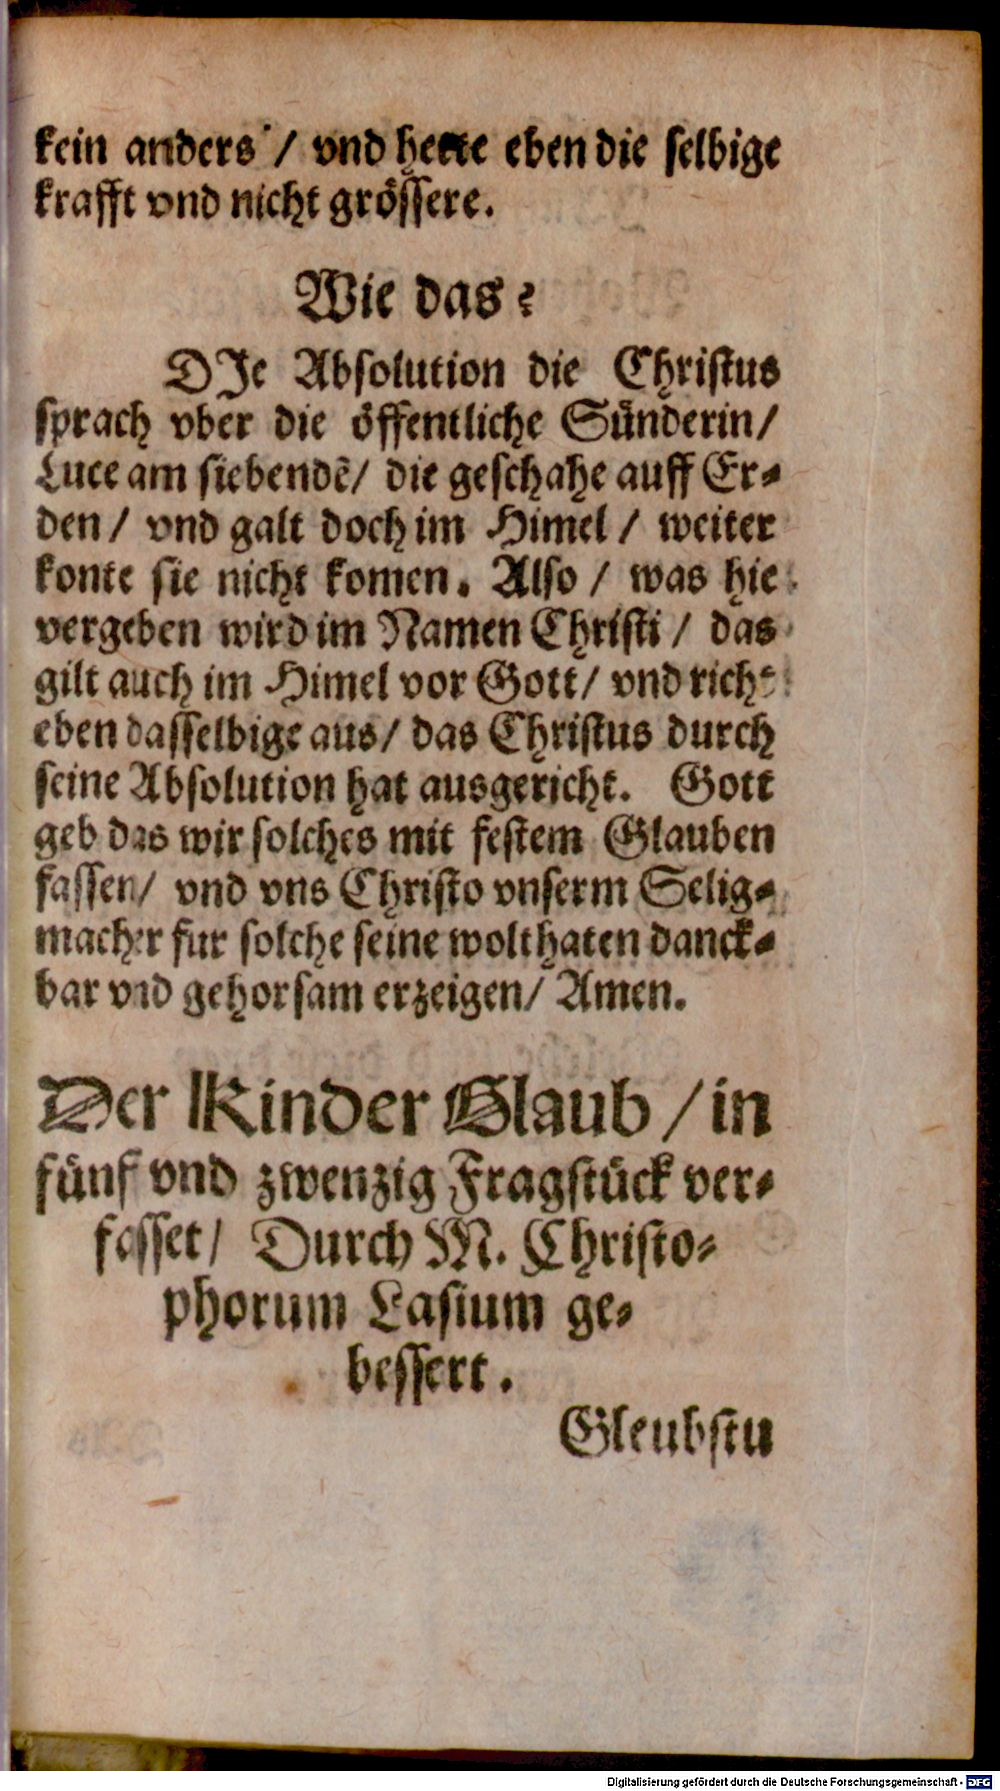 kein anders / vnd hette eben die selbige
krafft vnd nicht grössere.
Wie das?
DJe Absolution die Christus
sprach vber die öffentliche Sünderin/
Luce am siebendẽ/ die geschahe auff Er-
den / vnd galt doch im Himel / weiter
konte sie nicht komen. Also / was hie
vergeben wird im Namen Christi / das
gilt auch im Himel vor Gott/ vnd richt
eben dasselbige aus/ das Christus durch
seine Absolution hat ausgericht. Gott
geb das wir solches mit festem Glauben
fassen/ vnd vns Christo vnserm Selig-
macher fur solche seine wolthaten danck-
bar vnd gehorsam erzeigen/ Amen.
Der Kinder Glaub / in
fünf vnd zwenzig Fragstück ver-
fasset/ Durch M. Christo-
phorum Lasium ge-
bessert.
Gleubstu
Digitalisierung gefördert durch die Deutsche Forschungsgemeinschaft - DFG